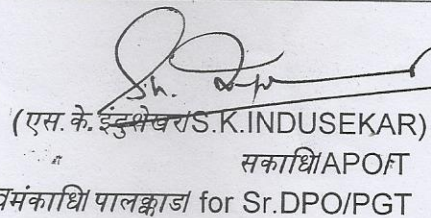 (एस. के. इंदुशेखर/S.K.INDUSEKAR)
सकाधि/APO/T
वमंकाधि/ पालक्काड/ for Sr.DPO/PGT